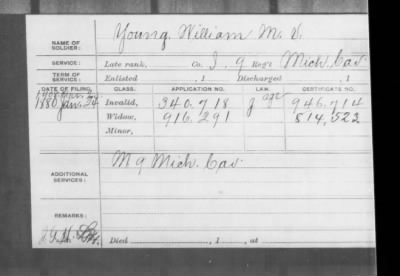 NAME OF SOLDIER: Young, William M. V.
SERVICE: Late rank, Co. I, 9 Reg't Mich. Cav.
TERM OF SERVICE: Enlisted , 1 Discharged , 1
DATE OF FILING. CLASS. APPLICATION NO. LAW. CERTIFICATE NO.
1880 Jan. 24 Invalid, 340.718 g age 946,714
Widow, 916.291 814,522
Minor,
ADDITIONAL SERVICES: M 9 Mich. Cav.
REMARKS:
Died , 1 , at